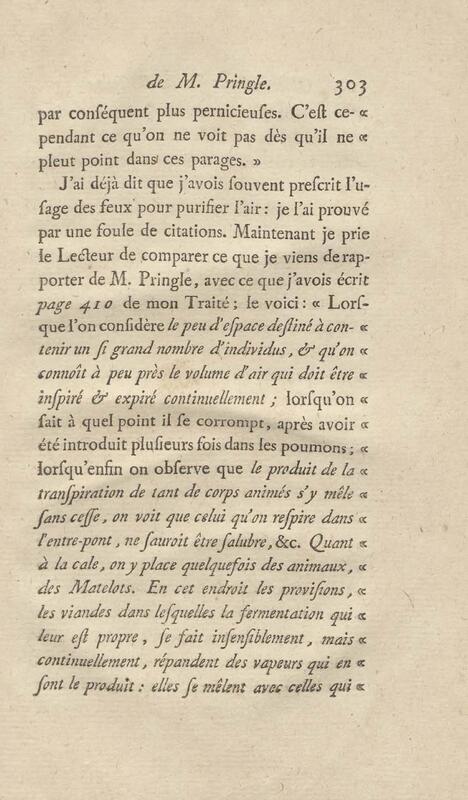 de M. Pringle. 303
par conſéquent plus pernicieuſes. C'eſt ce- «
pendant ce qu'on ne voit pas dès qu'il ne «
pleut point dans ces parages. »
J'ai déjà dit que j'avois ſouvent preſcrit l'u-
ſage des feux pour purifier l'air : je l'ai prouvé
par une foule de citations. Maintenant je prie
le Lecteur de comparer ce que je viens de rap-
porter de M. Pringle, avec ce que j'avois écrit
page 410 de mon Traité ; le voici : « Lorſ-
que l'on conſidère le peu d'eſpace deſtiné à con- «
tenir un ſi grand nombre d'individus, & qu'on «
connoît à peu près le volume d'air qui doit être «
inſpiré & expiré continuellement ; lorſqu'on «
ſait à quel point il ſe corrompt, après avoir «
été introduit pluſieurs fois dans les poumons ; «
lorſqu'enfin on obſerve que le produit de la «
tranſpiration de tant de corps animés s'y mêle «
ſans ceſſe, on voit que celui qu'on reſpire dans «
l'entre-pont, ne ſauroit être ſalubre, &c. Quant «
à la cale, on y place quelquefois des animaux, «
des Matelots. En cet endroit les proviſions, «
les viandes dans leſquelles la fermentation qui «
leur eſt propre, ſe fait inſenſiblement, mais «
continuellement, répandent des vapeurs qui en «
ſont le produit : elles ſe mêlent avec celles qui «